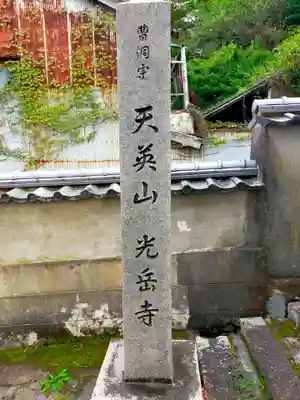 曹洞宗
天英山 光岳寺